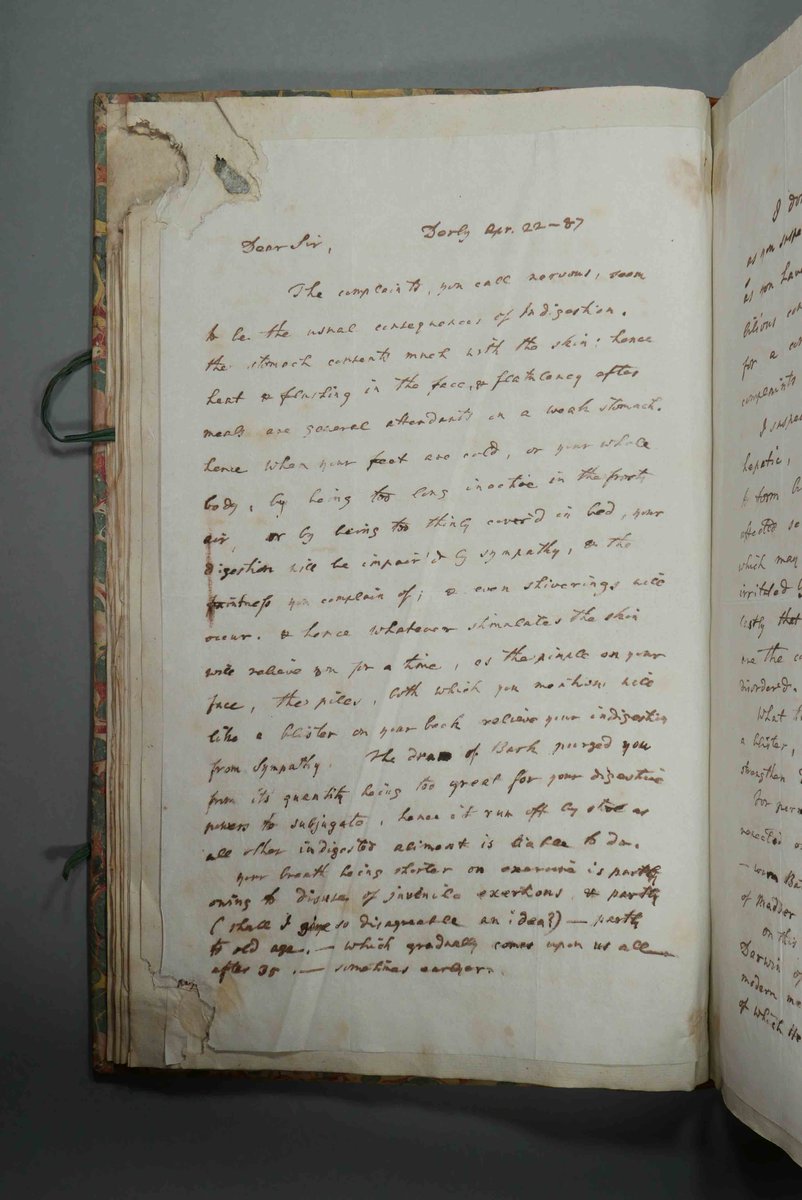 Derby Apr. 22-87
Dear Sir,
The complaints, you call nervous, seem
to be the usual consequences of Indigestion.
the stomach consents much with the skin: hence
heat & flushing in the face, & flatulency after
meals are general attendants on a weak stomach.
hence when your feet are cold, or your whole
body, by being too long inactive in the frosty
air, or by being too thinly cover'd in bed, your
digestion will be impair'd by sympathy, & the
faintness you complain of; & even shiverings will
occur. & hence whatever stimulates the skin
will relieve you for a time, as the pimple on your
face, the piles, both which you mention will
like a blister on your back relieve your indigestion
from Sympathy. The dram of Bark purged you
from its quantity being too great for your digestive
powers to subjugate, hence it run off by stole as
all other indigested aliment is liable to do.
your breath being shorter on exercise is partly
owing to disuse of juvenile exertions & partly
(shall I give so disagreable an idea?) — partly
to old age, — which gradually comes upon us all
after 35. — sometimes earlier.
I don
as you suspe
as you have
bilious con
for a con
complaints
I suspe
hepatic,
to form b
affected se
which may
irritated b
lastly that
are the c
disorder'd.
What t
a blister,
strengthen
For perm
neglected o
— warm Ba
of Madder
on this
Darwin of
modern m
of which He